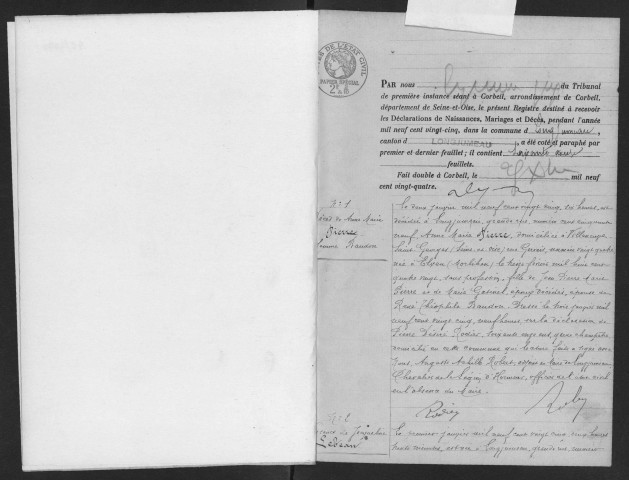 DE L'ETAT CIVIL
PAPIER SPÉCIAL
PAR nous du Tribunal
de première instance séant à Corbeil, arrondissement de Corbeil,
département de Seine-et-Oise, le présent Registre destiné à recevoir
les Déclarations de Naissances, Mariages et Décès, pendant l'année
mil neuf cent vingt-cinq, dans la commune d Longjumeau,
canton d LONGJUMEAU a été coté et paraphé par
premier et dernier feuillet; il contient
feuillets.
Fait double à Corbeil, le mil neuf
cent vingt-quatre.
N° 1
Décès de Anne Marie
Pierre
femme Baudon
Le deux janvier mil neuf cent vingt cinq, six heures, est
décédée à Longjumeau, grande rue, numéro cent cinquante
neuf, Anne Marie Pierre, domiciliée à Villeneuve
Saint Georges (Seine et Oise), rue numéro vingt quatre
née à Elven (Morbihan) le treize février mil huit cent
quatre vingt, sans profession, fille de Pierre Marie
Pierre et de Marie époux décédés, épouse de
René Théophile Baudon. Dressé le trois janvier mil
neuf cent vingt cinq, neuf heures, sur la déclaration de
Pierre Désiré Rodier, garde champêtre
domicilié en cette commune qui lecture faite a signé avec
Nous, Auguste Achille Robert, adjoint au Maire de Longjumeau
Chevalier de la Légion d'Honneur, officier de l'état civil
en l'absence du Maire.
Rodier
N° 2
Le premier janvier mil neuf cent vingt cinq, onze heures
trente minutes, est née à Longjumeau, grande rue, numéro